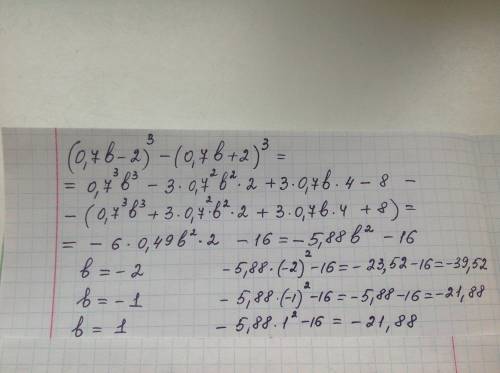 (0,7в-2)³-(0,7в+2)³=
=0,7³в³-3·0,7²в²·2+3·0,7в·4-8 -
-(0,7³в³+3·0,7²в²·2+3·0,7в·4+8)=
=-6·0,49в²·2 -16=-5,88в²-16
в=-2 -5,88·(-2)²-16=-23,52-16=-39,52
в=-1 -5,88·(-1)²-16=-5,88-16=-21,88
в=1 -5,88·1²-16=-21,88